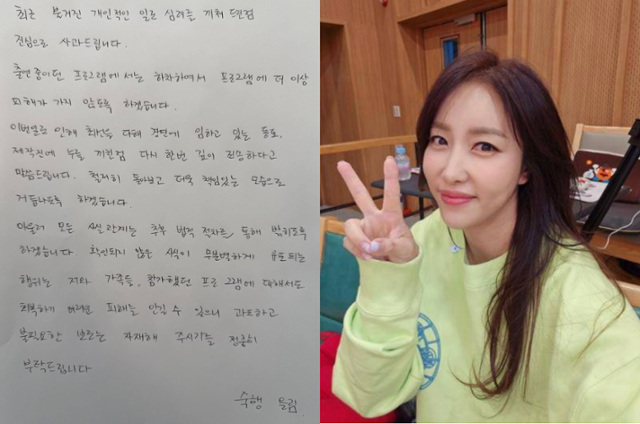 최근 불거진 개인적인 일로 심려를 끼쳐 드린점
진심으로 사과드립니다.
출연중이던 프로그램에서는 하차하여서 프로그램에 더 이상
피해가 가지 않도록 하겠습니다.
이번일로 인해 최선을 다해 경연에 임하고 있는 동료,
제작진에 누를 끼친점 다시 한번 깊이 죄송하다고
말씀드립니다. 철저히 돌아보고 더욱 책임있는 모습으로
거듭나도록 하겠습니다.
아울러 모든 사실관계는 추후 법적 절차를 통해 밝히도록
하겠습니다 확인되지 않은 사실이 무분별하게 유포되는
행위는 저와 가족들, 참가했던 프로그램에 대해서도
회복하기 어려운 피해를 안길 수 있으니 과도하고
불필요한 보도는 자제해 주시기를 정중히
부탁드립니다
숙행 드림